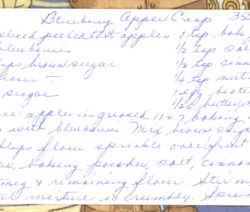 Blueberry Apple Crisp 35
sliced peeled tart apples 1 tsp bak
blueberries ½ tsp sal
ups brown sugar ½ tsp cinn
flour ¼ tsp nut
sugar 1 egg beate
½ c butter,
apples in greased 11 x 7 baking
with blueberries Mix brown suga
tblsps flour sprinkle over fruit
baking powder, salt, cinnam
meg & remaining flour Stir in
mixture is crumbly. Sprin